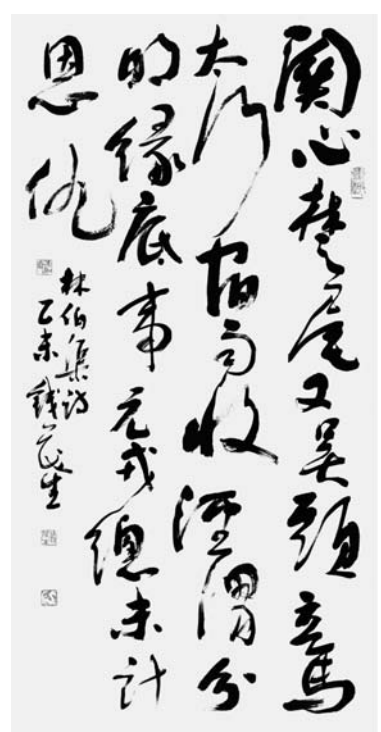 關心楚尾又吳頭立馬
太行宿雨收涇渭分
明緣底事元戎總未計
恩仇
林伯渠詩
乙未錢生